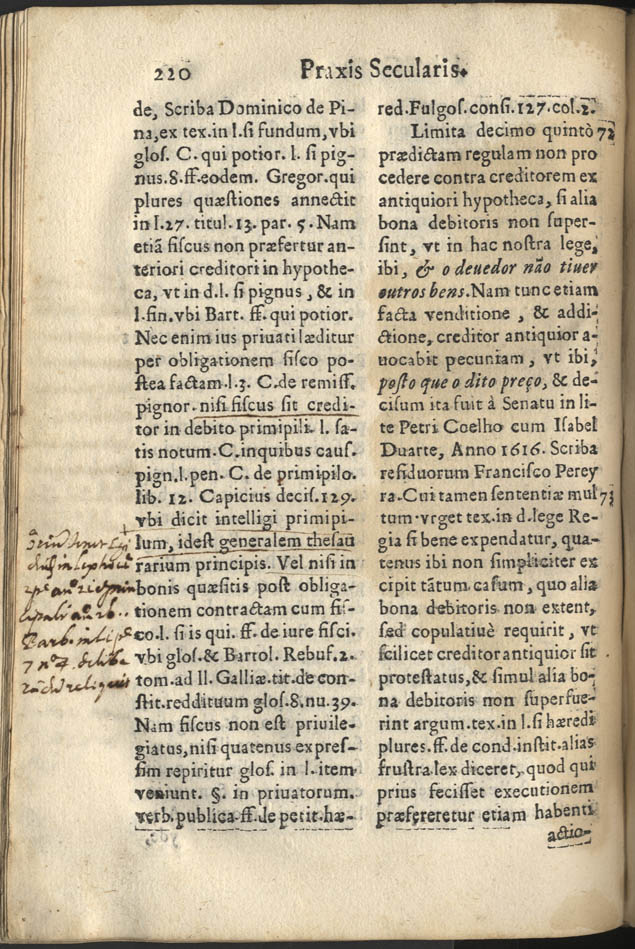 220
Praxis Secularis.
de, Scriba Dominico de Pi-
na, ex tex. in l. si fundum, vbi
glos. C. qui potior. l. si pig-
nus. 8. ff. eodem. Gregor. qui
plures quæstiones annectit
in l. 27. titul. 13. par. 5. Nam
etiã fiscus non præfertur an-
teriori creditori in hypothe-
ca, vt in d. l. si pignus, & in
l. fin. vbi Bart. ff. qui potior.
Nec enim ius priuati læditur
per obligationem fisco po-
stea factam. l. 3. C. de remiss.
pignor. nisi fiscus sit credi-
tor in debito primipili. l. sa-
tis notum. C. in quibus caus.
pign. l. pen. C. de primipilo.
lib. 12. Capicius decis. 129.
vbi dicit intelligi primipi-
lum, idest generalem thesau
rarium principis. Vel nisi in
bonis quæsitis post obliga-
tionem contractam cum fis-
co. l. si is qui. ff. de iure fisci.
vbi glos. & Bartol. Rebuf. 2.
tom. ad ll. Galliæ. tit. de con-
stit. reddituum glos. 8. nu. 39.
Nam fiscus non est priuile-
giatus, nisi quatenus expres-
sim repiritur glos. in l. item
veniunt. §. in priuatorum.
verb. publica. ff. de petit. hæ-
red. Fulgos. consi. 127. col. 2.
Limita decimo quintò 72
prædictam regulam non pro
cedere contra creditorem ex
antiquiori hypotheca, si alia
bona debitoris non super-
sint, vt in hac nostra lege,
ibi, & o deuedor não tiuer
outros bens. Nam tunc etiam
facta venditione, & addi-
ctione, creditor antiquior a-
uocabit pecuniam, vt ibi,
posto que o dito preço, & de-
cisum ita fuit à Senatu in li-
te Petri Coelho cum Isabel
Duarte, Anno 1616. Scriba
residuorum Francisco Perey
ra. Cui tamen sententiæ mul 73
tum vrget tex. in d. lege Re-
gia si bene expendatur, qua-
tenus ibi non simpliciter ex
cipit tãtum casum, quo alia
bona debitoris non extent,
sed copulatiuè requirit, vt
scilicet creditor antiquior sit
protestatus, & simul alia bo-
na debitoris non superfue-
rint argum. tex. in l. si hæredi
plures. ff. de cond. instit. alias
frustra lex diceret, quod qui
prius fecisset executionem
præfereretur etiam habenti
actio-